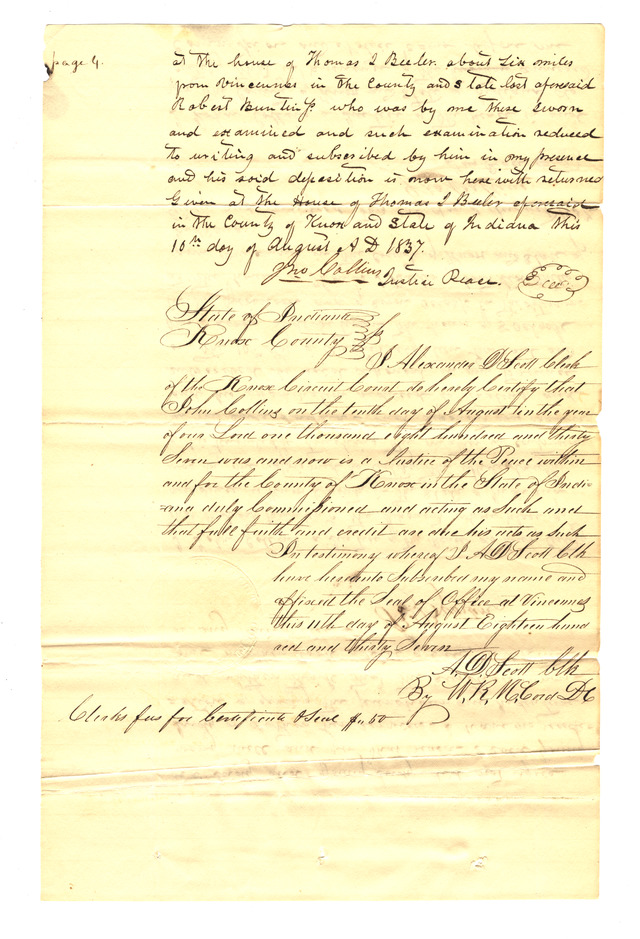 page 4.
at the house of Thomas J Beeler about six miles
from Vincennes in the County and State last aforesaid
Robert Buntin Jr who was by me these sworn
and examined and such examination reduced
to writing and subscribed by him in my presence
and his said deposition is now here with returned
Given at the House of Thomas J Beeler aforesaid
in the County of Knox and State of Indiana this
10th day of August A D 1837.
Jno Collins Justice Peace. Seal
State of Indiana
Knox County Ss
I Alexander D Scott Clerk
of the Knox Circuit Court do hereby Certify that
John Collins on the tenth day of August in the year
of our Lord one thousand eight hundred and thirty
Seven was and now is a Justice of the Peace within
and for the County of Knox in the State of Indi-
ana duly Commissioned and acting as Such and
that full faith and credit are due his acts as Such
In testimony whereof I A D Scott Clk
have hereunto Subscribed my name and
affixed the Seal of Office at Vincennes
this 11th day of August Eighteen hund
red and thirty Seven
A. D. Scott Clk
By W. R. McCord DC
Clerks fees for Certificate & Seal $0.50